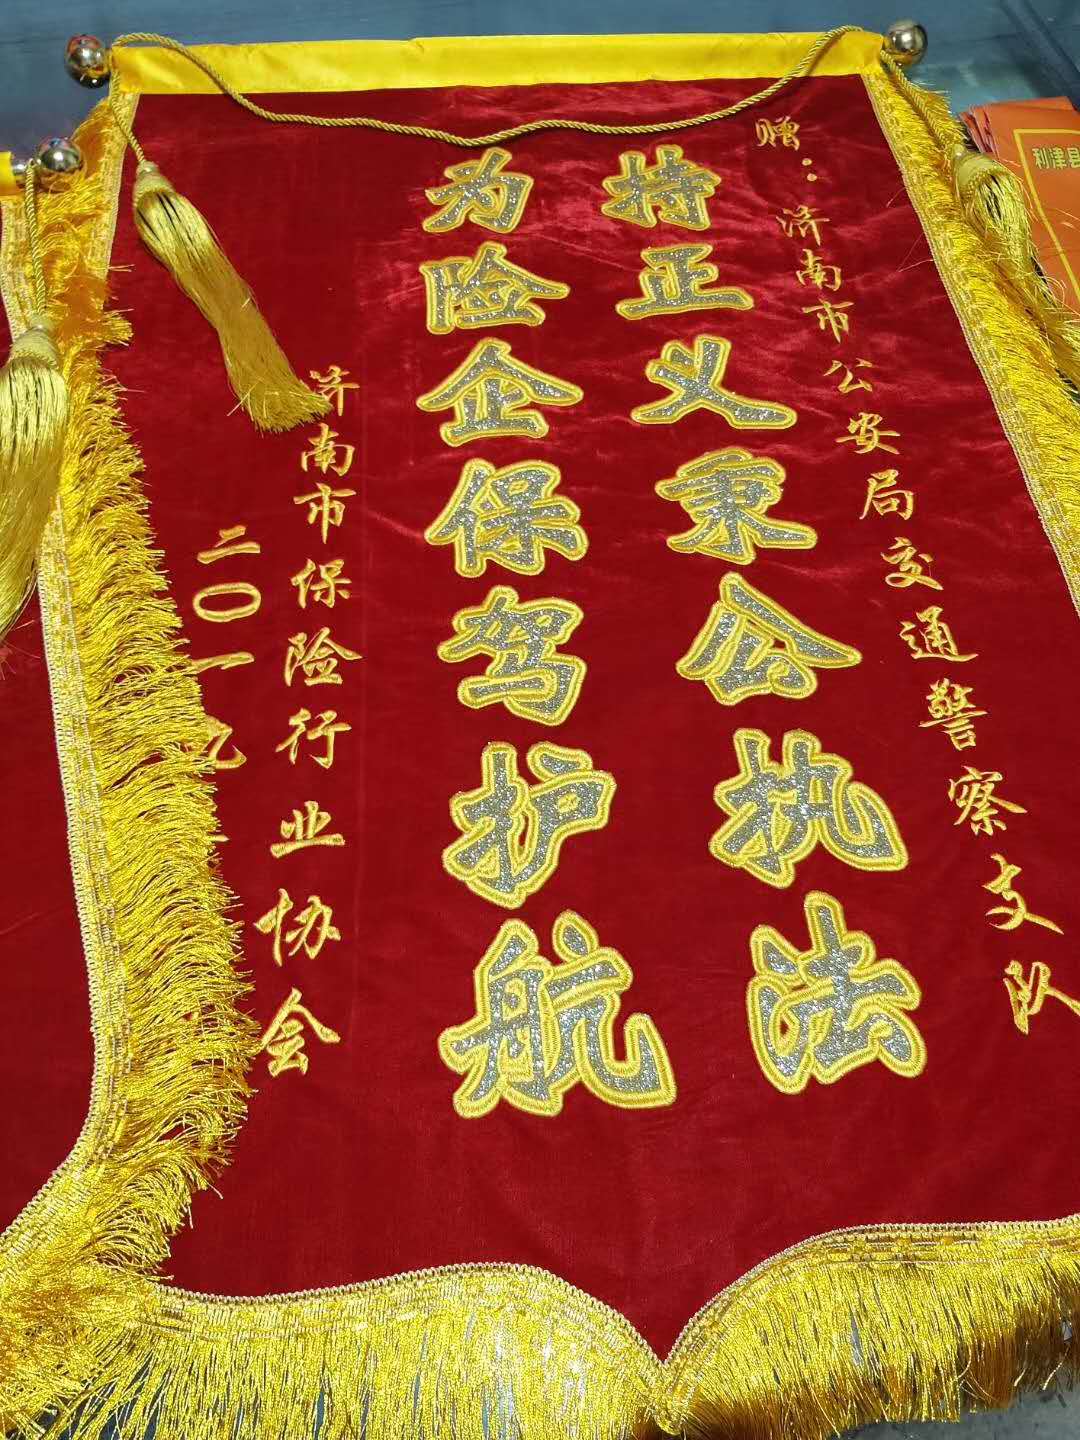 赠：济南市公安局交通警察支队
持正义秉公执法
为险企保驾护航
济南市保险行业协会
二〇一九
利津县